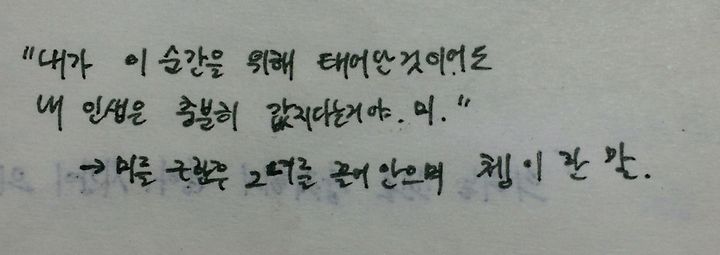 "내가 이 순간을 위해 태어난것이어도
내 인생은 충분히 값지다는거야. 미."
→ 미를 구한후 그녀를 끌어 안으며 쳄이 한 말.